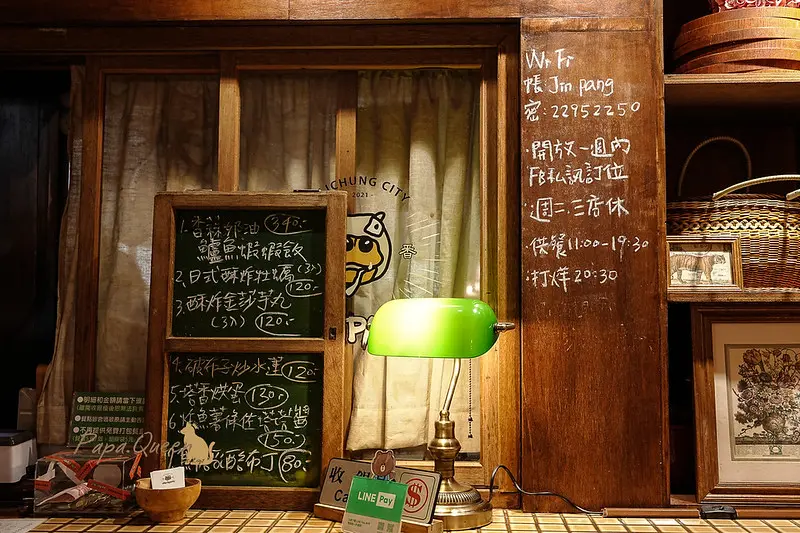 1. 香蒜蝦油 340.-
鱸魚蝦蝦飯
2. 日式酥炸牡蠣(3入) 120.-
3. 酥炸金沙芋丸
(3入) 120.-
4. 破布子炒水蓮 120.-
5. 塔香烘蛋 130.-
6. 炸魚薯條佐塔塔醬
150.-
布丁 80.-
Wi Fi
帳:Jin pang
密:22952250
·開放一週內
FB私訊訂位
·週二.三店休
·供餐11:00-19:30
·打烊20:30
ICHUNG CITY
2021
香
Papa.Queen
收
Ca
LINE Pay
$